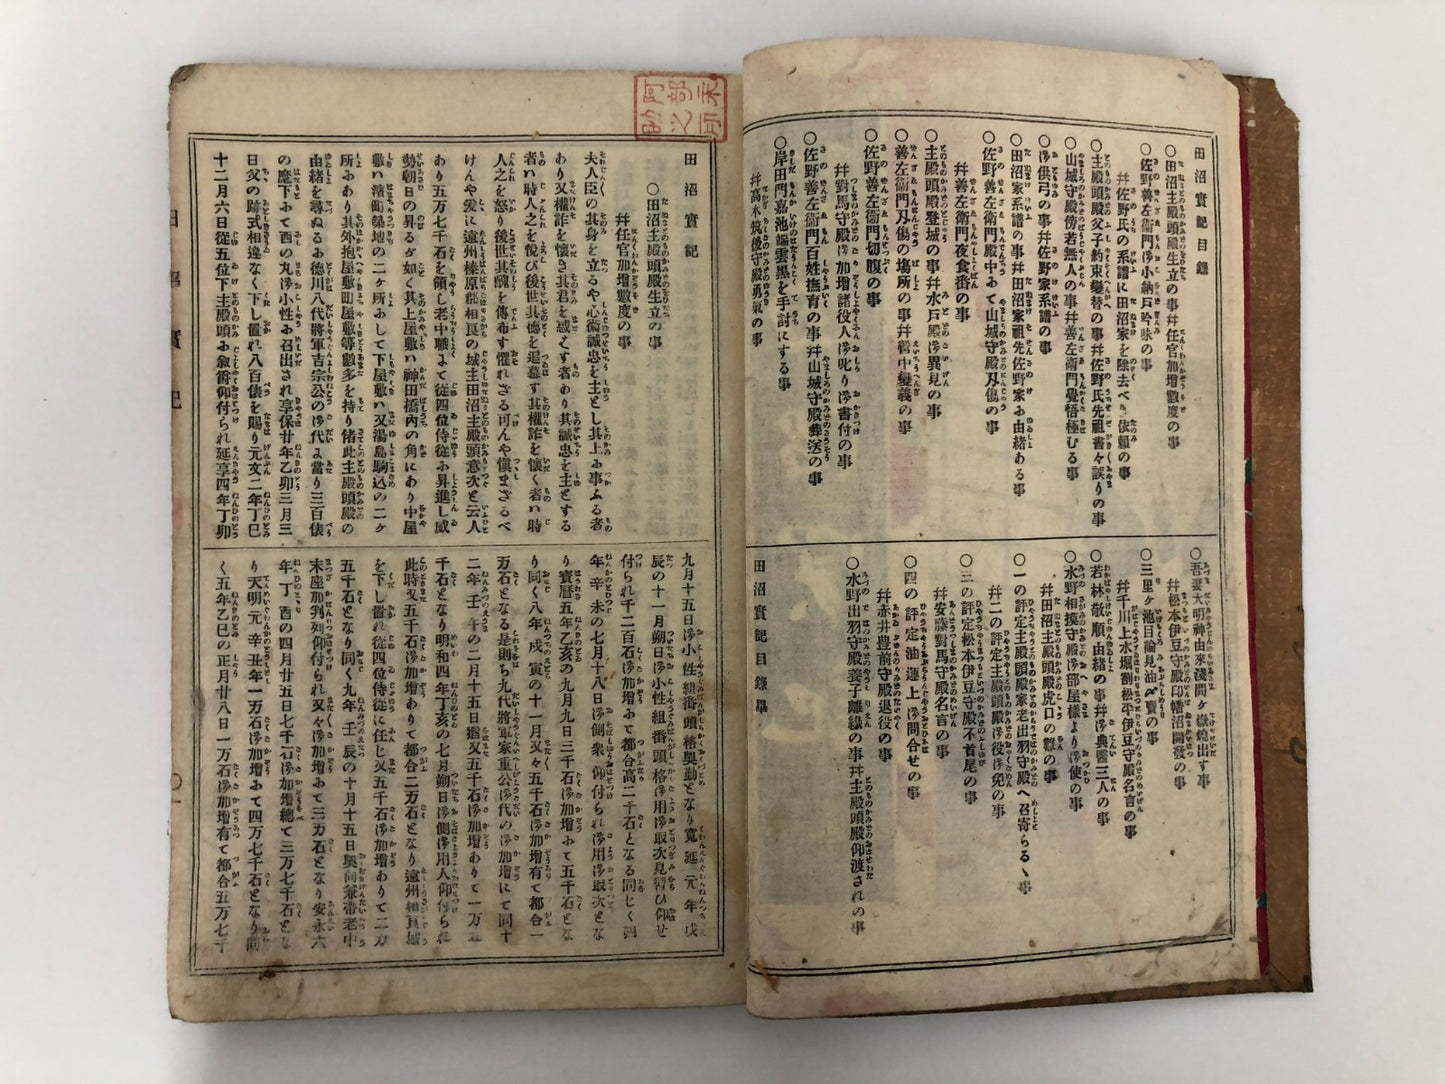 田沼實記目錄
〇田沼主殿頭殿生立の事幷任官加增數度の事
〇佐野善左衞門御小納戶吟味の事
幷佐野氏の系譜に田沼家を除去べき依賴の事
〇主殿頭殿父子約束變替の事幷佐野氏先祖書々誤りの事
〇山城守殿傍若無人の事幷善左衞門覺悟極むる事
〇御供弓の事幷佐野家系譜の事
〇田沼家系譜の事幷田沼家祖先佐野家ふ由緖ある事
〇佐野善左衞門殿中ふて山城守殿刄傷の事
幷善左衞門夜食番の事
〇主殿頭殿登城の事幷水戶殿御異見の事
〇善左衞門刄傷の場所の事幷醫中變義の事
〇佐野善左衞門切腹の事
幷對馬守殿御加增諸役人御叱り御書付の事
〇佐野善左衞門百姓撫育の事幷山城守殿葬送の事
〇岸田門嘉池端雲黑を手討にする事
幷高木筑後守殿勇氣の事
〇吾妻大明神由來淺間ヶ嶽燒出す事
幷松本伊豆守殿印幡沼開發の事
〇三里ヶ池目論見油〆賣の事
幷千川上水堀割松平伊豆守殿名言の事
〇若林敬順由緖の事幷御典醫三人の事
〇水野相摸守殿御部屋樣より御使の事
幷田沼主殿頭殿虎口の難の事
〇一の評定主殿頭殿家老出羽守殿へ召寄らるゝ事
幷二の評定主殿頭殿御役御免の事
〇三の評定松本伊豆守殿不首尾の事
幷安藤對馬守殿名言の事
〇四の評定油運上御問合せの事
幷赤井豊前守殿退役の事
〇水野出羽守殿養子離緣の事幷主殿頭殿仰渡されの事
田沼實記目錄畢
田沼實記
〇田沼主殿頭殿生立の事
幷任官加增數度の事
夫人臣の其身を立るや心術誠忠を主とし其上ふ事ふる者
あり又權詐を懷き其君を惑くす者あり其誠忠を主とする
者ハ時人之を悅び後世其德を追慕す其權詐を懷く者ハ時
人之を怒り後世其醜を傳布す懼れざる可んや愼まざるべ
けんや爰に遠州榛原郡相良の城主田沼主殿頭意次と云人
あり五万七千石を領し老中職よて從四位侍從ふ昇進し威
勢朝日の昇るが如く其上屋敷ハ神田橋內の角にあり中屋
敷ハ濱町築地の二ヶ所ふして下屋敷ハ又湯島駒込の二ヶ
所ふあり其外抱屋敷町屋敷等數多を持り偖此主殿頭殿の
由緖を尋ぬるふ德川八代將軍吉宗公の御代よ當り三百俵
の麾下ふて酉の丸御小性ふ召出され享保廿年乙卯三月三
日父の跡式相違なく下し置れ八百俵を賜り元文二年丁巳
十二月六日從五位下主殿頭ふ敍爵仰付られ延享四年丁卯
九月十五日御小性組番頭格奧勤となり寬延元年戊
辰の十一月朔日御小性組番頭格御用御取次見習ひ仰せ
付られ千二百石御加增ふて都合高二千石となる同じく四
年辛未の七月十八日御側衆仰付られ御用御取次とな
り寳曆五年乙亥の九月九日三千石御加增ふて五千石とな
り同く八年戊寅の十一月又々五千石御加增有て都合一
万石となる是則ち九代將軍家重公御代の御加增にて同十
二年壬午の二月十五日猶又五千石御加增ありて一万五
千石となり明和四年丁亥の七月朔日御側御用人仰付られ
此時又五千石御加增ありて都合二万石となり遠州相良城
を下し置れ從四位侍從に任じ又五千石御加增ありて二万
五千石となり同く九年壬辰の十月十五日奧向兼帶老中
末座加判列仰付られ又々御加增ふて三万石となり安永六
年丁酉の四月廿五日七千石御加增總て三万七千石とな
り天明元辛丑年一万石御加增ふて四万七千石となり同
く五年乙巳の正月廿八日一万石御加增有て都合五万七千
田沼實記